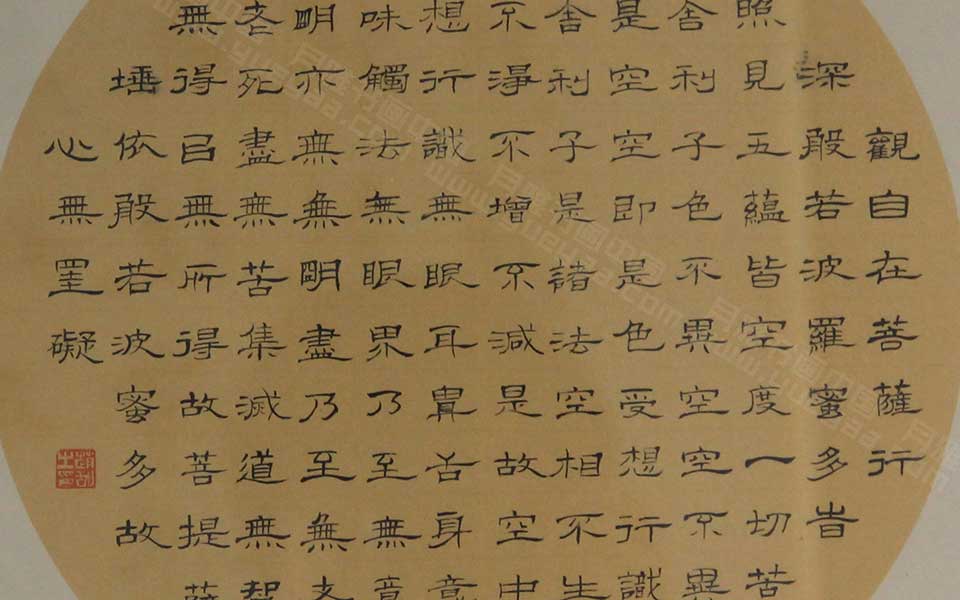 觀自在菩薩行
深般若波羅蜜多旹
照見五蘊皆空度一切苦
舍利子色不異空空不異
是空空即是色受想行識
舍利子是諸法空相不生
不淨不增不減是故空中
想行識無眼耳鼻舌身意
味觸法無眼界乃至無意
明亦無無明盡乃至無
老死盡無苦集滅道無智
無得㠯無所得故菩提薩
埵依般若波蜜多故
心無罣礙